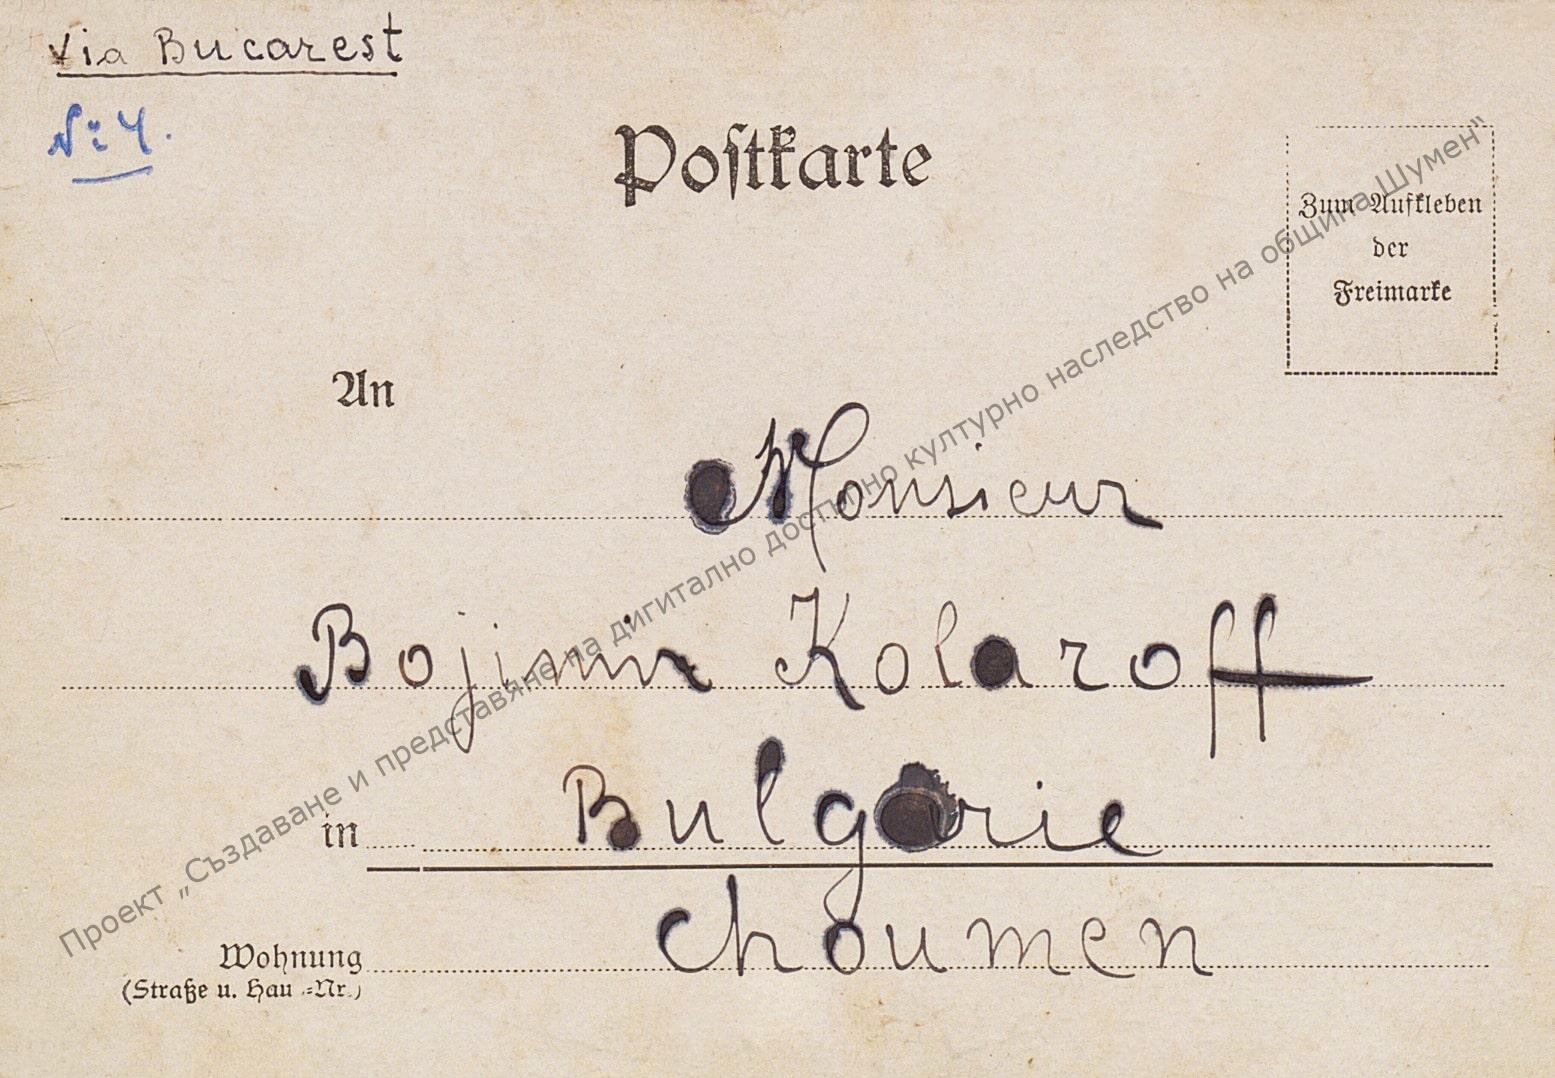 Via Bucarest
№ 4.
Postkarte
Zum Aufkleben
der
Freimarke
An
Monsieur
Bojimir Kolaroff
in Bulgarie
Choumen
Wohnung
(Straße u. Hau -Nr.)
Проект „Създаване и представяне на дигитално достъпно културно наследство на община Шумен“